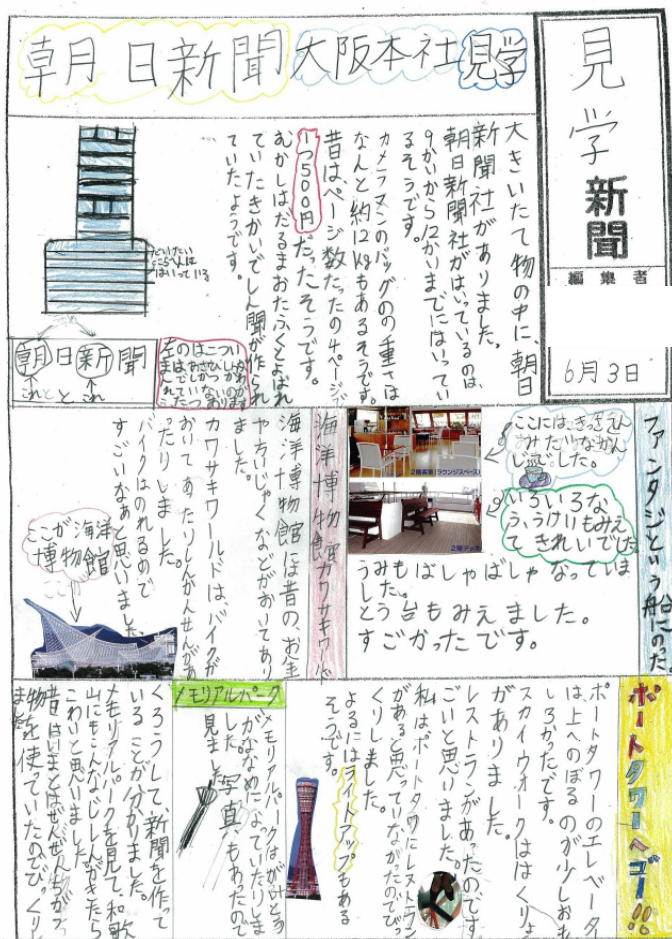 見学新聞
編集者
6月3日
朝日新聞大阪本社見学
大きいたて物の中に、朝日
新聞社がありました。
朝日新聞社がはいっているのは、
9かいから12かいまでにはいってい
るそうです。
カメラマンのバッグのの重ては
なんと約12kgもあるそうです。
昔はページ数たったの4ページで
1つ500円だったそうです。
むかしはだるまおたふくとよばれ
ていたきかいでしん聞が作られ
ていたようです。
だいたい
ここらへんに
はいっている
朝日新聞
これと
これ
ファンタジという船にのった
ここにはきっさてん
みたいなかん
じでした。
2階客室(ラウンジスペース)
いろいろな
ふうけいもみえ
てきれいでした
2階デッキ
うみもばしゃばしゃなっていま
した。
とう台もみえました。
すごかったです。
海洋博物館カワサキワールド
海洋博物館は昔の、お金
や方いじゃくなどがおいてあり
ました。
カワサキワールドはバイクが
おいてあたりしんかんせんがあ
ったりしました。
バイクはのれるので
すごいなあと思いました。
ここが海洋
博物館
ポートタワーへゴー!!
ポートタワーのエレベータ
は、上へのぼるのが少しおも
しろかったです。
スカイウォークははくりょく
がありました。
レストランがあったのです
ごいと思いました。
私はポートタワにレストラン
があると思っていなかたのでびっ
くりしました。
よるにはライトアップもある
そうです。
メモリアルパーク
メモリアルパークはがいとう
がななめになっていたりしま
した。写真もあったので
見ました。
くろうして、新聞を作って
いることが分かりました。
メモリアルパークを見て、和歌
山にもこんなじしんがきたら
こわいと思いました。
昔はいまとはぜんぜんちがう
物を使っていたのでびっくりし
ました